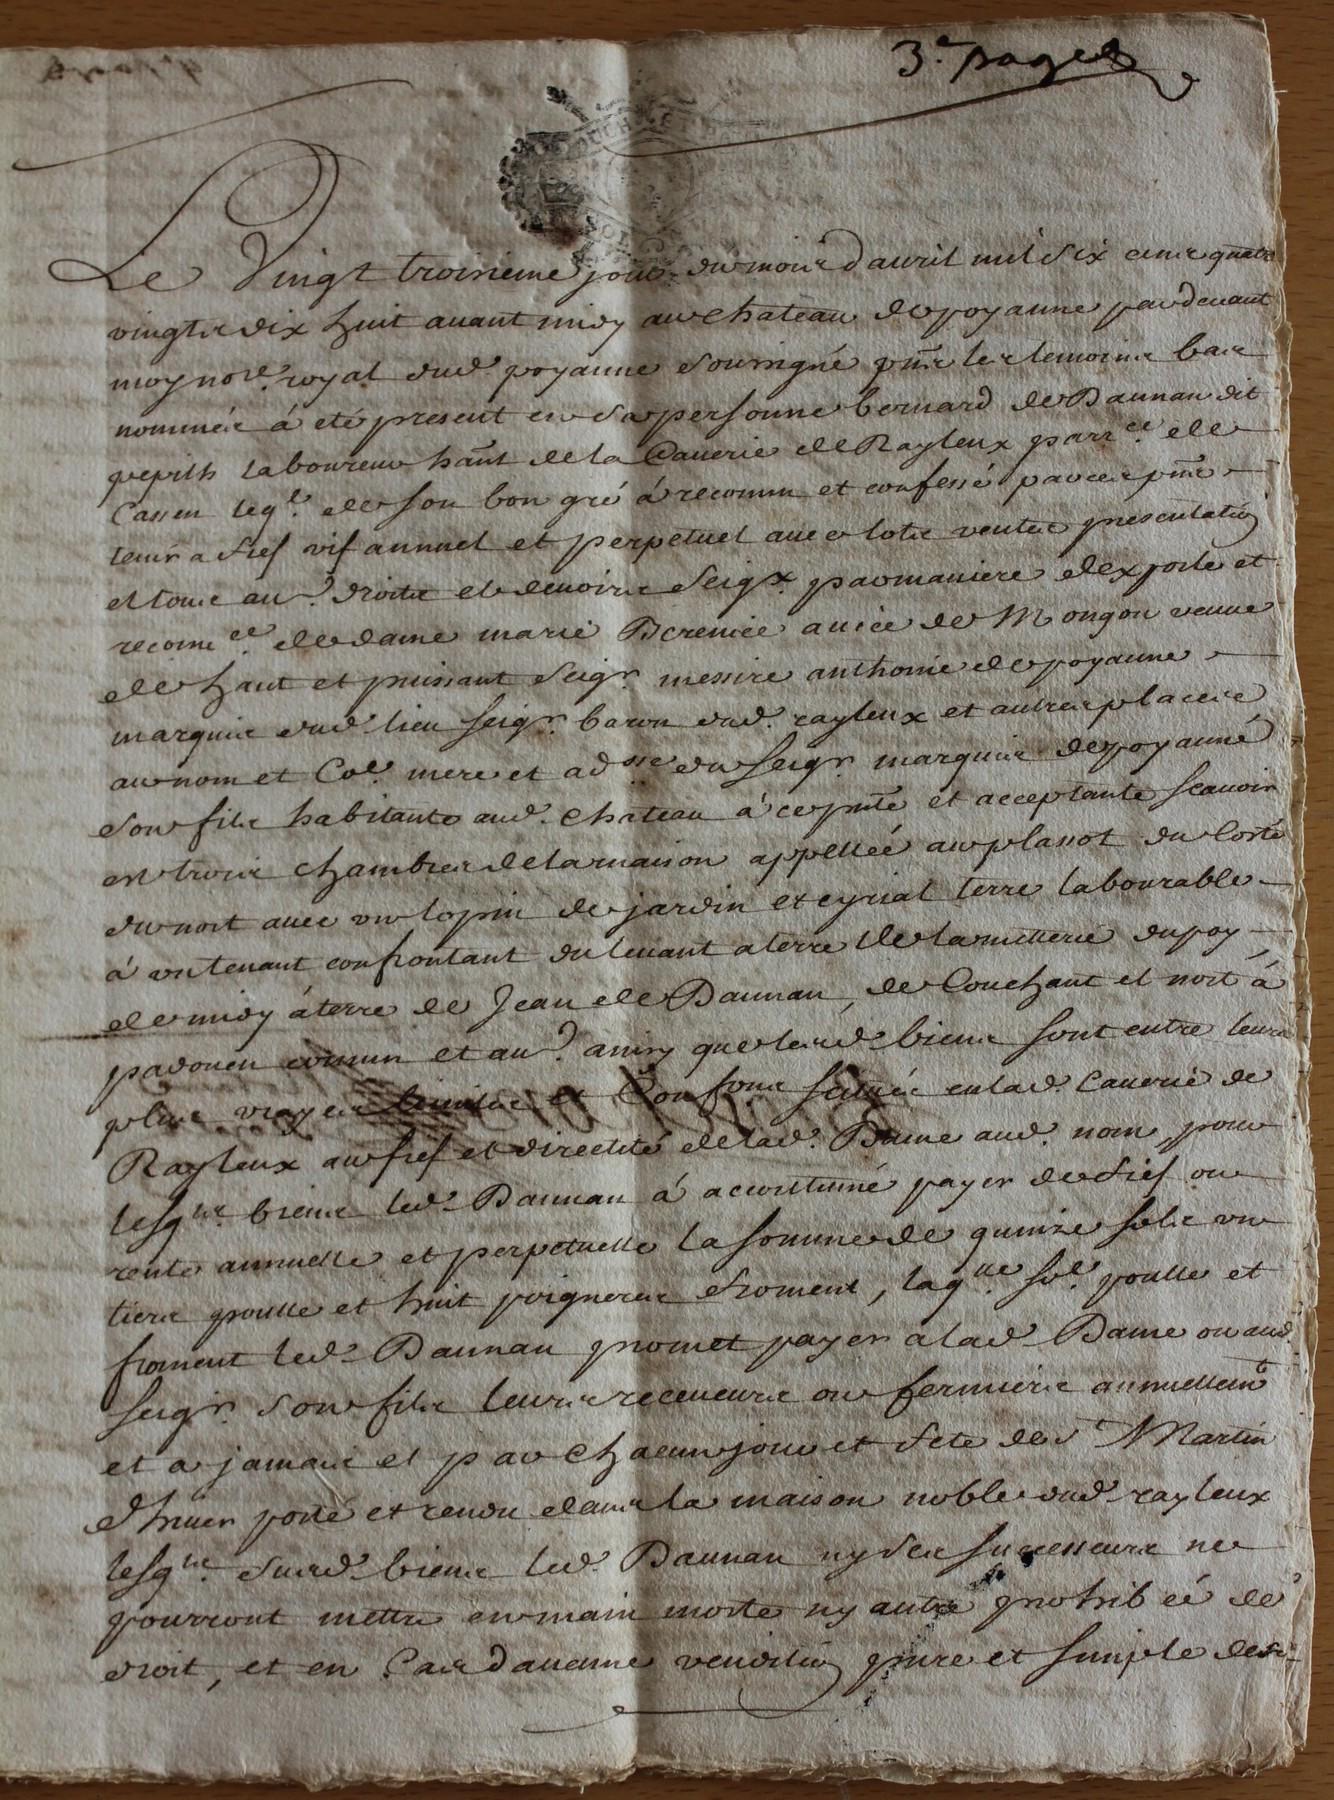 3.e page
Le Vingt troisieme jour du mois d avril mil six cens quatre
vingts dix huit avant midy au chateau de poyanne pardevant
moy nore. royal dud. poyanne soussigné pnts les temoins bas
nommés à eté present en sa personne bernard de Daunan dit
pepith laboureur hant. de la Caverie de Rayleux parr.ce de
Cassen leql. de son bon gré à reconnu et confessé par ces pntes
tenir a fief vif annuel et perpetuel avec lots ventes presentation
et tous au.s droits et devoirs Seigx. par maniere d exporle et
reconn.ce de dame marie Berenice avice de Mongon veuve
de haut et puissant Seigr. messire anthoine de poyanne
marquis dud. lieu Seigr. baron dud. rayleux et autres places
au nom et Côe. mere et ad.sse du Seigr. marquis de poyanne
son fils habitante aud. chateau à ce pnte et acceptante scavoir
est trois chambres de la maison appellée au plassot du Costé
du nort avec un lopin de jardin et cyrial terre labourable
à un tenant confrontant du levant a terre de la metterie du poy
de midy à terre de Jean de Daunan, de Couchant et nort à
padouen comun et au.s ainsy que lesd. biens sont entre leurs
plus vrayes limites et Confrons. scitués en lad. Caverie de
Rayleux au fief et directité de lad. Dame aud. nom, pour
lesq.ls biens led. Daunan à accoutumé payer de fief ou
rente annuelle et perpetuelle la somme de quinze sols un
tiers poulle et huit poigneres froment, laq.lle sôe. poulle et
froment led. Daunan promet payer a lad. Dame ou aud.
seigr. son fils leurs receveurs ou fermiers annuellemt
et a jamais et par chacun jour et fete de St Martin
d hiver porté et rendu dans la maison noble dud. rayleux
lesq.ls susd. biens led. Daunan ny ses successeurs ne
pourront mettre en main morte ny autre prohibée de
droit, et en Cas d aucune vendition pure et simple desd.